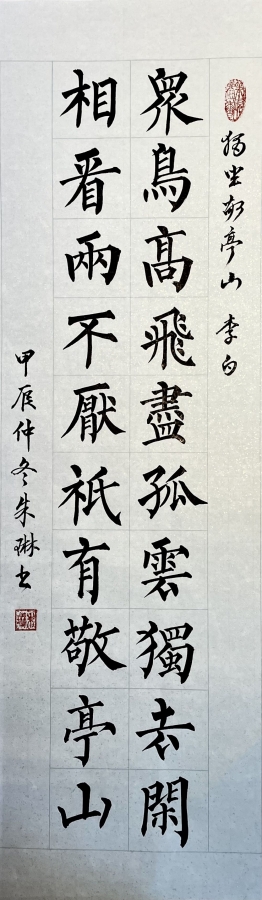 獨坐敬亭山 李白
眾鳥高飛盡孤雲獨去閑
相看兩不厭祇有敬亭山
甲辰仲冬朱琳书